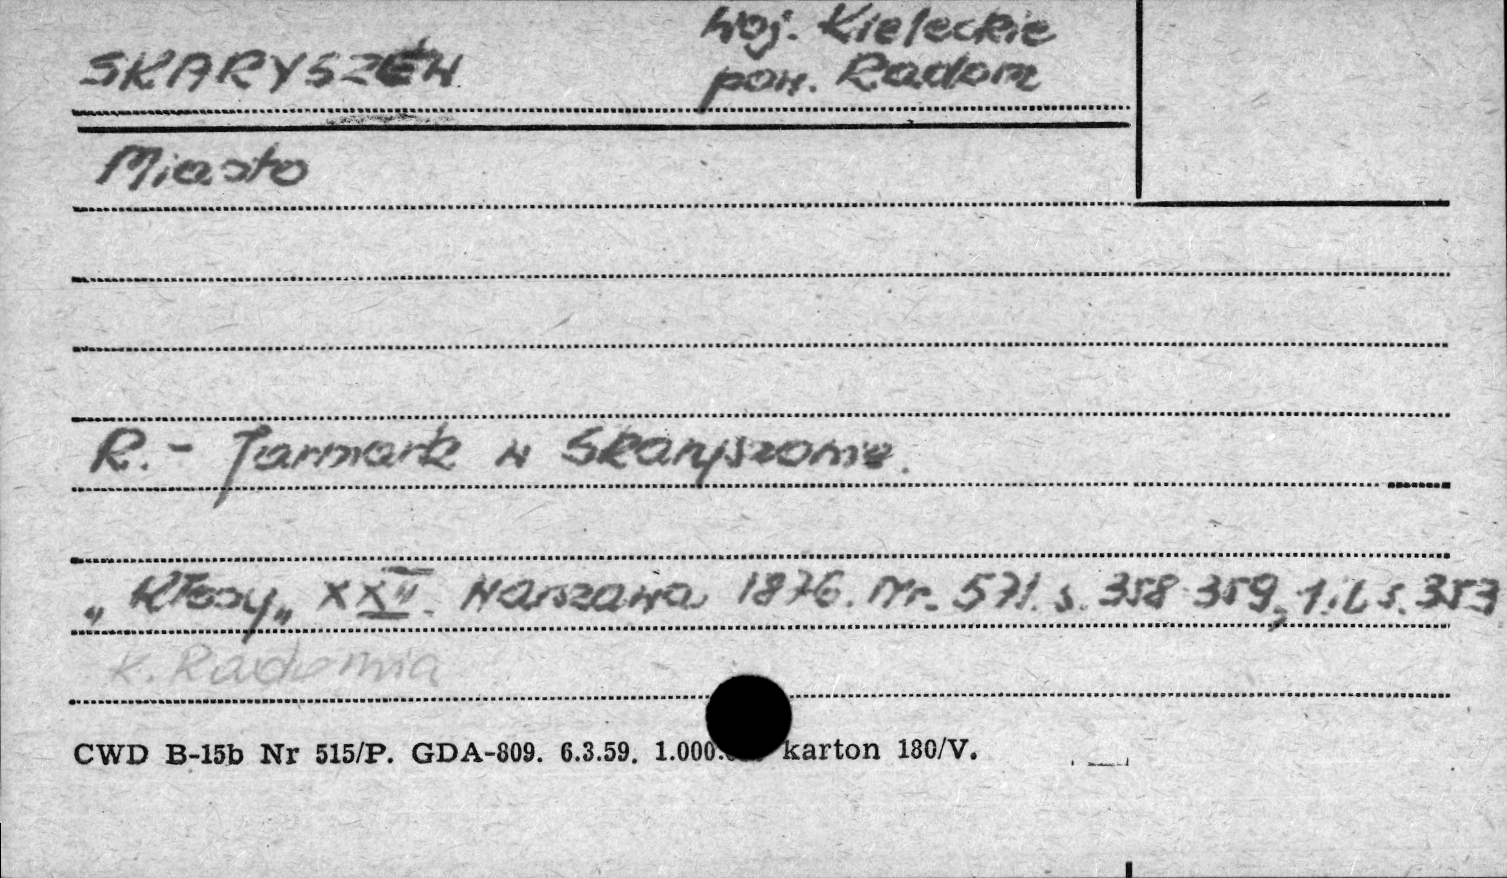 SKARYSZEW
woj. Kieleckie
pow. Radom
Miasto
R. - Jarmark w Skaryszewie.
„Kłosy„ XXII. Warszawa 1876. Nr. 571. s. 358-359, 1 il. s. 353
k. Radomia
CWD B-15b Nr 515/P. GDA-809. 6.3.59. 1.000. karton 180/V.